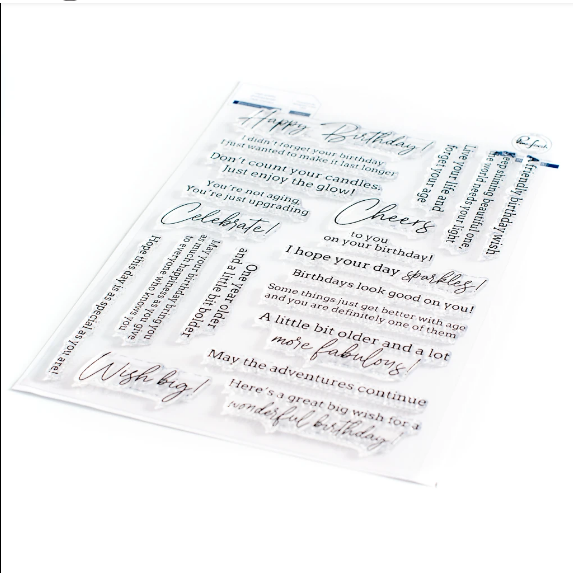 Happy Birthday!
I didn't forget your birthday
I just wanted to make it last longer
Don't count your candles.
Just enjoy the glow!
You're not aging,
You're just upgrading
Celebrate!
Cheers
to you
on your birthday!
Live your life and
forget your age
Keep shining beautiful one,
the world needs your light
A friendly birthday wish
I hope your day sparkles!
Birthdays look good on you!
Some things just get better with age
and you are definitely one of them
A little bit older and a lot
more fabulous!
May the adventures continue
Here's a great big wish for a
wonderful birthday!
One year older
and a little bit bolder
May your birthday bring you
as much happiness as you give
to everyone who knows you
Hope this day is as special as you are!
Wish big!